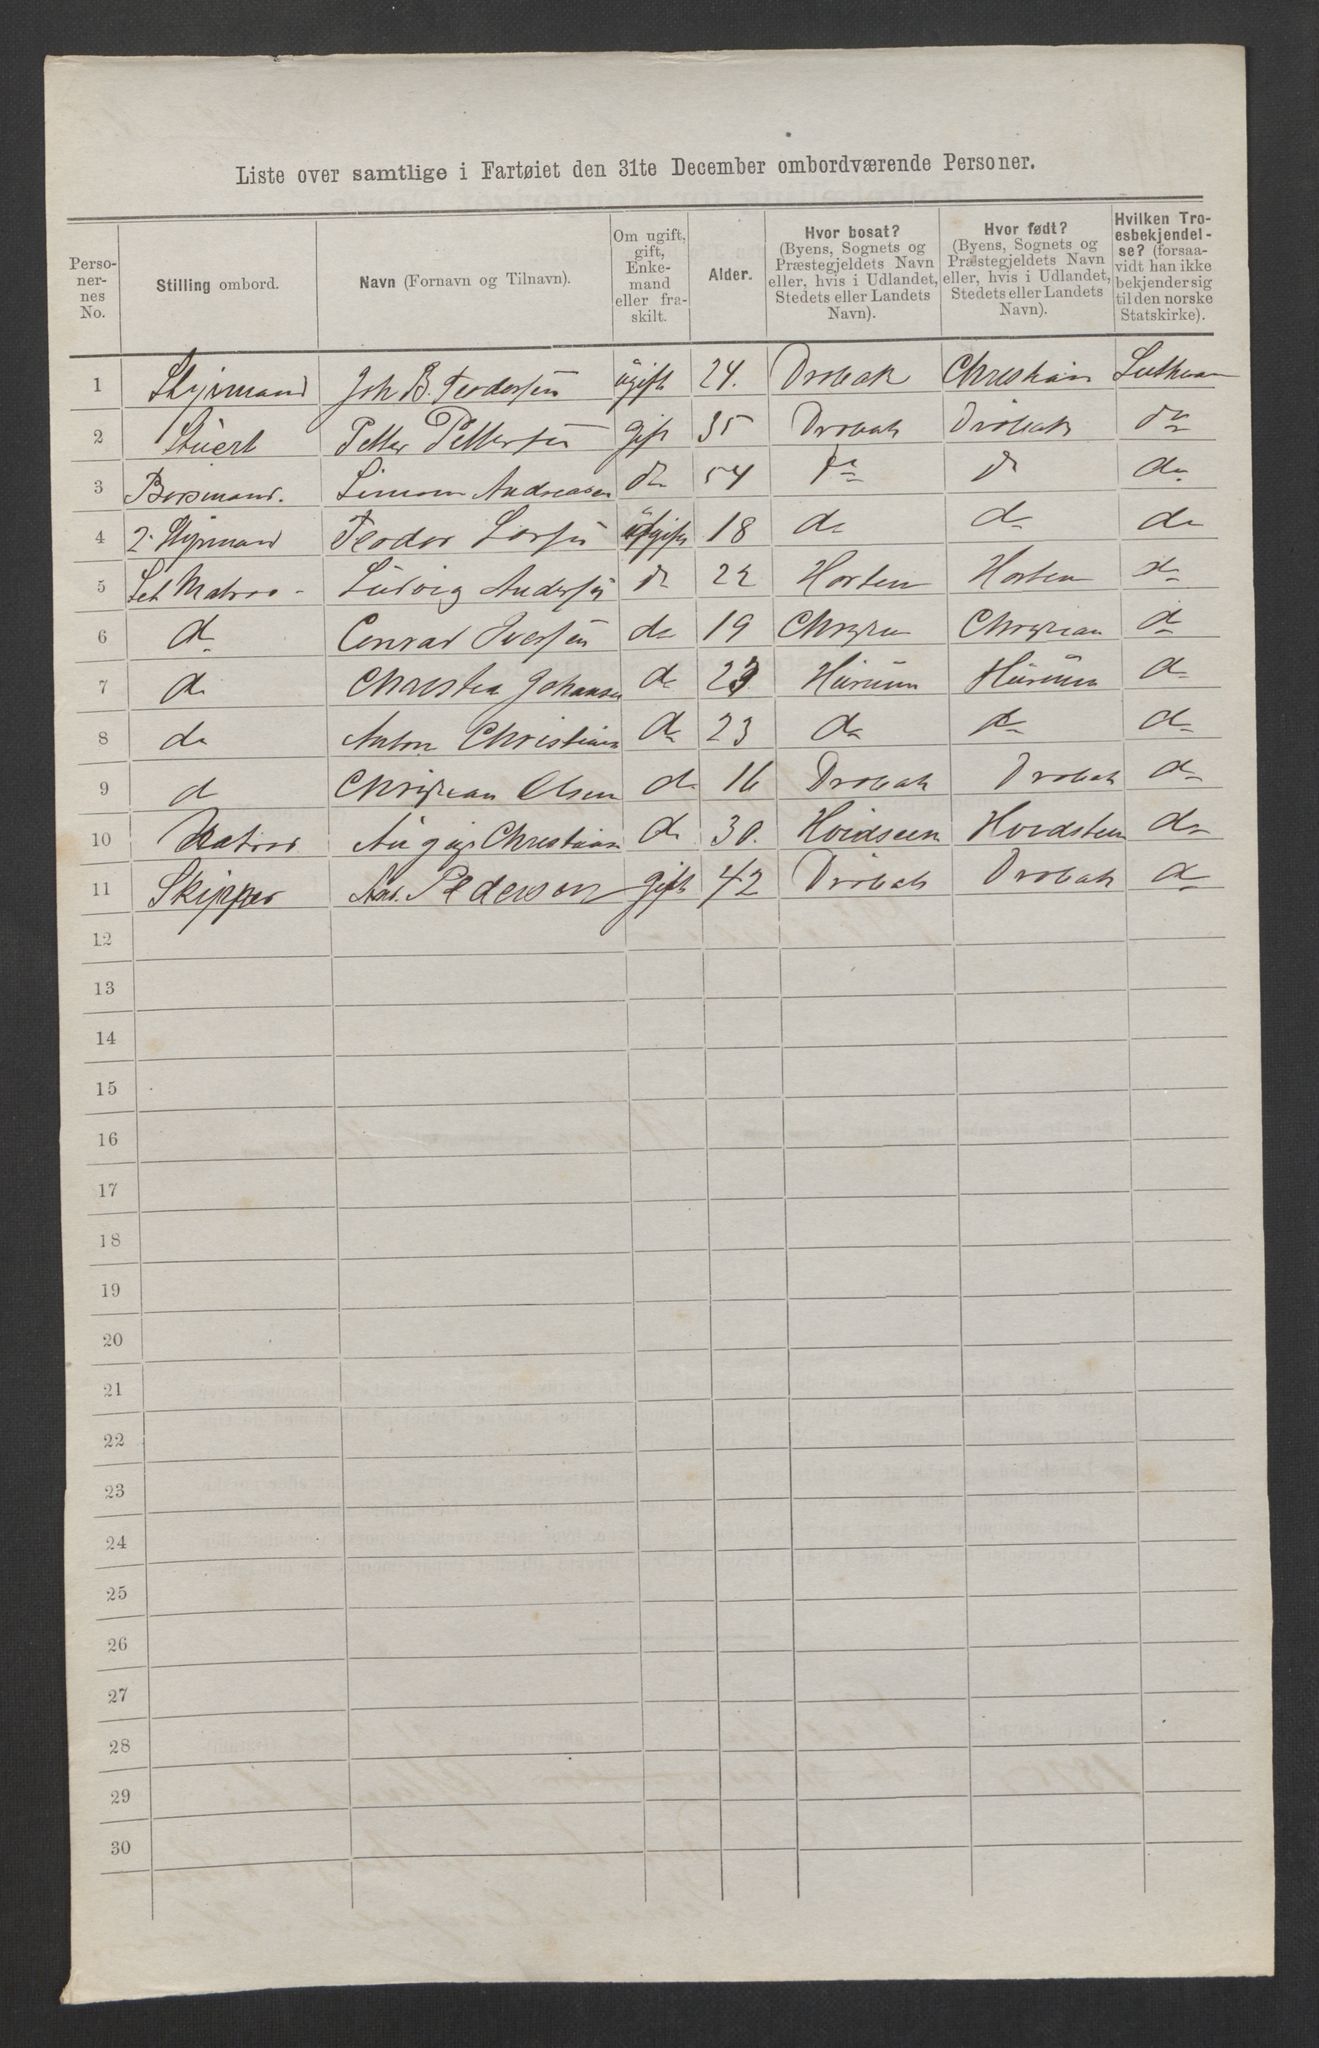 Liste over samtlige i Fartøiet den 31te December ombordværende Personer.
Perso-
ner-
nes
No.
Stilling ombord.
Navn (Fornavn og Tilnavn).
Om ugift,
gift,
Enke-
mand
eller fra-
skilt.
Alder.
Hvor bosat?
(Byens, Sognets og
Præstegjeldets Navn
eller, hvis i Udlandet,
Stedets eller Landets
Navn).
Hvor født?
(Byens, Sognets og
Præstegjeldets Navn
eller, hvis i Udlandet,
Stedets eller Landets
Navn).
Hvilken Tro-
esbekjendel-
se? (forsaa-
vidt han ikke
bekjender sig
til den norske
Statskirke).
1 Styrmand Joh B. Teodorsen ugift 24. Drobak Christian
2 Stuert Petter Pettersen gift 35 Drobak Drobak do
3 Simon Andreasen do 54 do do do
4 2. Styrmand Teodor ugift 18 do do do
5 Let Matros Ludvig Andersen do 22 Horten Horten do
6 do Conrad Iversen do 19 do
7 do Christen Johansen do 23 Hurum Hurum do
8 do Anton Christiansen do 23 do do do
9 do Christian Olsen do 16 Drobak Drobak do
10 Matros Christiansen do 30. do
11 Skipper And. Pederson gift 42 Drobak Drobak do
12
13
14
15
16
17
18
19
20
21
22
23
24
25
26
27
28
29
30